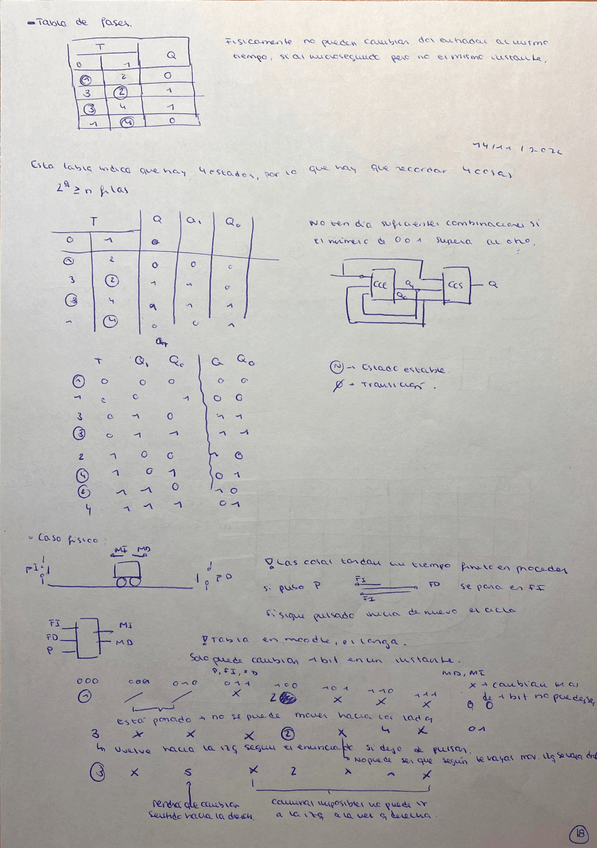 - Tabla de fases.
T Q
0 1
① 2 0
3 ② 1
③ 4 1
1 ④ 0
Fisicamente no pueden cambiar dos entradas al mismo
tiempo, si al microsegundo pero no el mismo instante.
14/11/2022
Esta tabla indica que hay 4 estados, por lo que hay que recordar 4 cosas
2^Q ≥ n filas
T Q Q1 Q0
0 1
① 2 0 0 0
3 ② 1 1 0
③ 4 1 1
1 ④ 0 0 1
No tendría suficientes combinaciones si
el número de 0 o 1 supera al otro.
CCE Q1 Q0 CCS Q
T Q1 Q0 Q1 Q0
① 0 0 0 0 0
1 0 0 1 0 0
3 0 1 0 1 1
③ 0 1 1 1 1
2 1 0 0 1 0
④ 1 0 1 0 1
② 1 1 0 1 0
4 1 1 1 0 1
→ Estado estable.
→ Transición.
- Caso físico:
MI MD
PI PD
Las cosas tardan un tiempo finito en proceder
si pulso P FI FD se para en FI
FI
Si sigue pulsado inicia de nuevo el ciclo
FI
FD
P
MI
MD
Tabla en moodle, es larga.
Solo puede cambiar 1 bit en un instante.
P, FI, FD MD, MI
000 001 010 011 100 101 110 111
① x 2 0 0
x → cambian más
de 1 bit no puede ser
Está parado → no se puede mover hacia los lados
3 x x x ② x 4 x 01
↳ Vuelve hacia la izq según el enunciado si dejo de pulsar.
③ x 5 x 2 x x
Tendría que cambiar
sentido hacia la derech.
caminos imposibles no puede ir
a la izq a la vez q derecha.
18